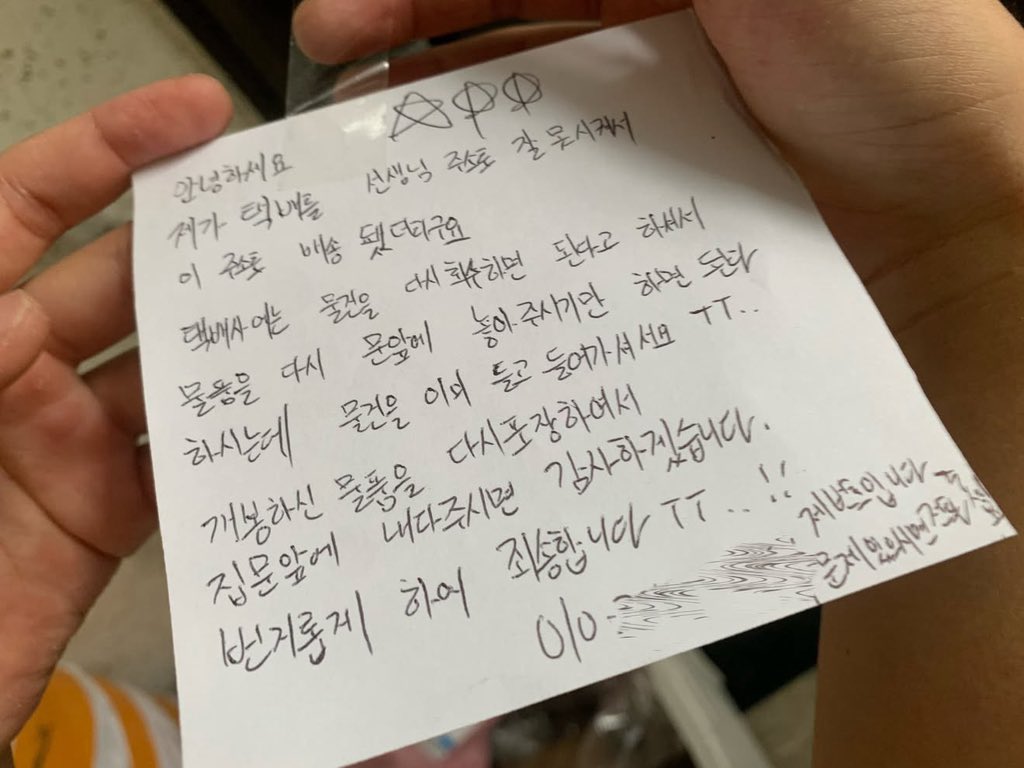 안녕하세요
제가 택배를 선생님 주소로 잘못시켜서
이 주소로 배송 됐더라구요
택배사에는 물건을 다시 회수하면 된다고 하셔서
물품을 다시 문앞에 놓아주시기만 하면 된다
하시는데 물건을 이미 들고 들어가셔서요 ㅠㅠ..
개봉하신 물품을 다시포장하여서
집문앞에 내다주시면 감사하겠습니다.
번거롭게 하여 죄송합니다 ㅠㅠ..!!
010-
제번호입니다
문제있으시면